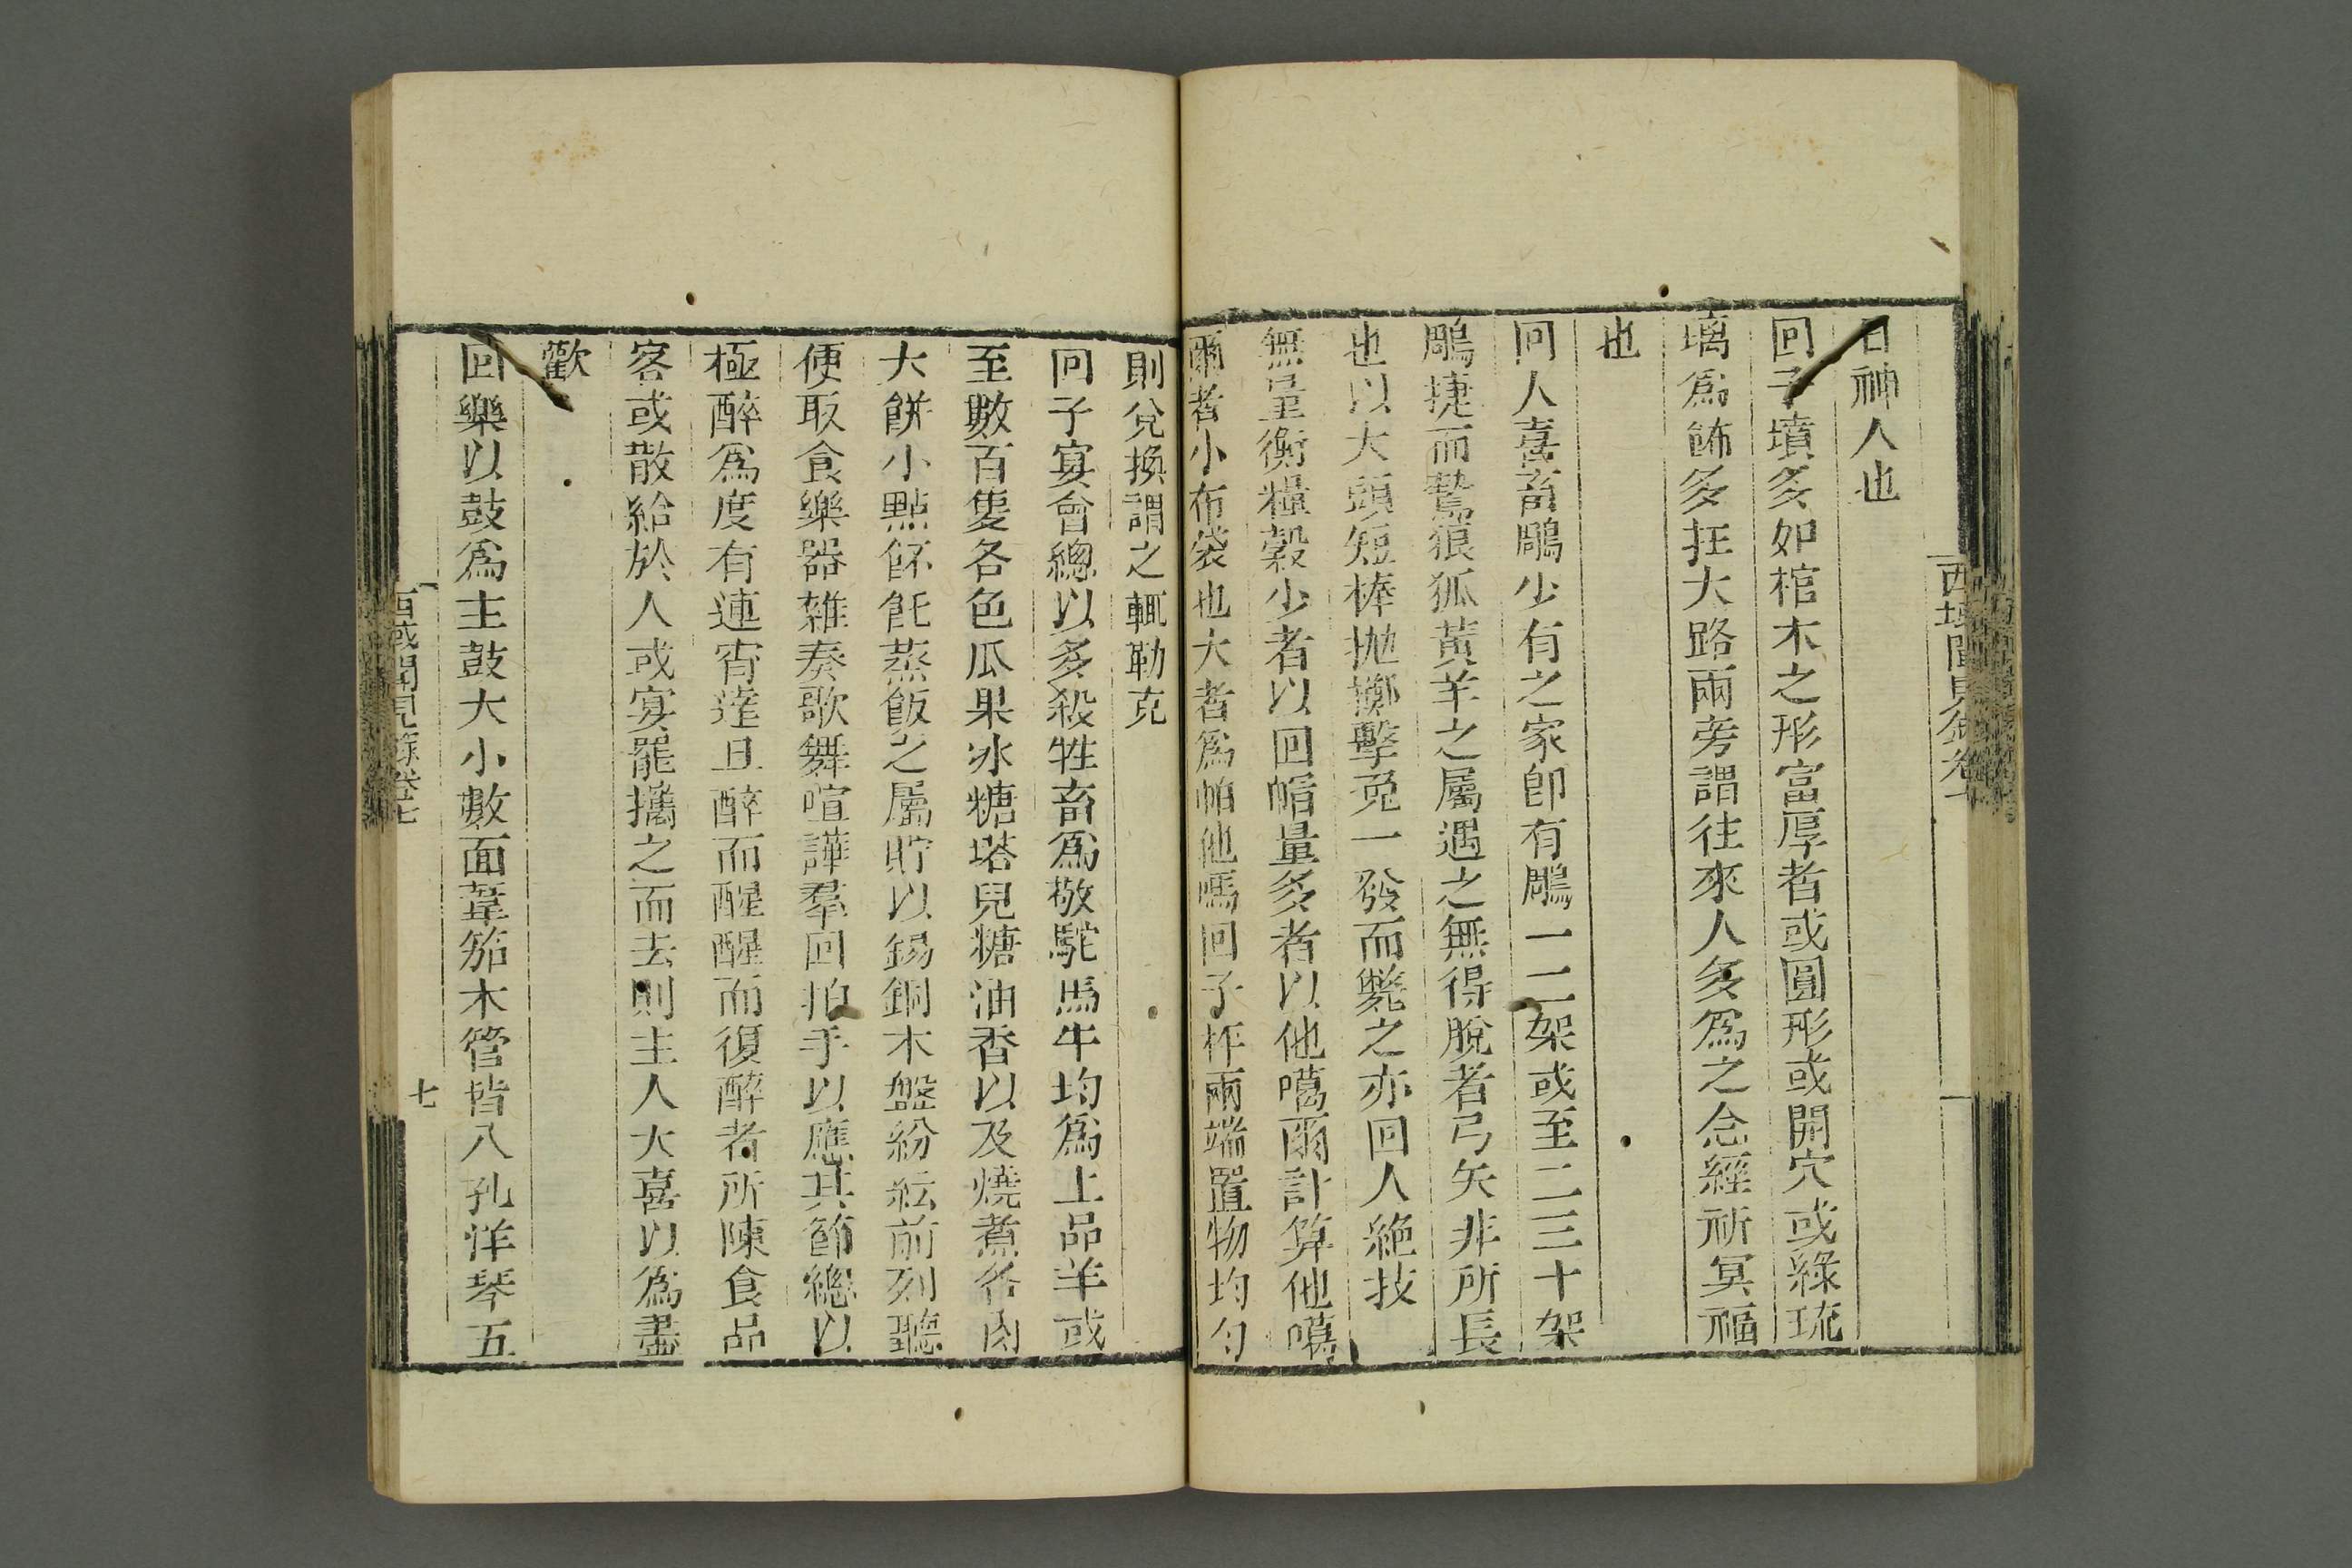 西域聞見錄卷七
曰神人也
回子墳多如棺木之形富厚者或圓形或開穴或綠琉
璃爲飾多在大路兩旁謂往來人多爲之念經祈冥福
也
回人喜畜鵰少有之家卽有鵰一二架或至二三十架
鵰捷而鷙狼狐黃羊之屬遇之無得脫者弓矢非所長
也以大頭短棒拋擲擊兔一發而斃之亦回人絶技
無量衡糧穀少者以回帽量多者以他噶爾計算他噶
爾者小布袋也大者爲帕他嗎回子枰兩端置物均勻
則兌換謂之輒勒克
回子宴會總以多殺牲畜爲敬駝馬牛均爲上品羊或
至數百隻各色瓜果冰糖塔兒糖油香以及燒煮各肉
大餅小點飥蒸飯之屬貯以錫銅木盤紛紜前列聽
便取食樂器雜奏歌舞喧譁羣回拍手以應其節總以
極醉爲度有連宵達旦醉而醒醒而復醉者所陳食品
客或散給於人或宴罷攜之而去則主人大喜以爲盡
歡
回樂以鼓爲主鼓大小數面葦笳木管皆八孔洋琴五
西域聞見錄卷七
七